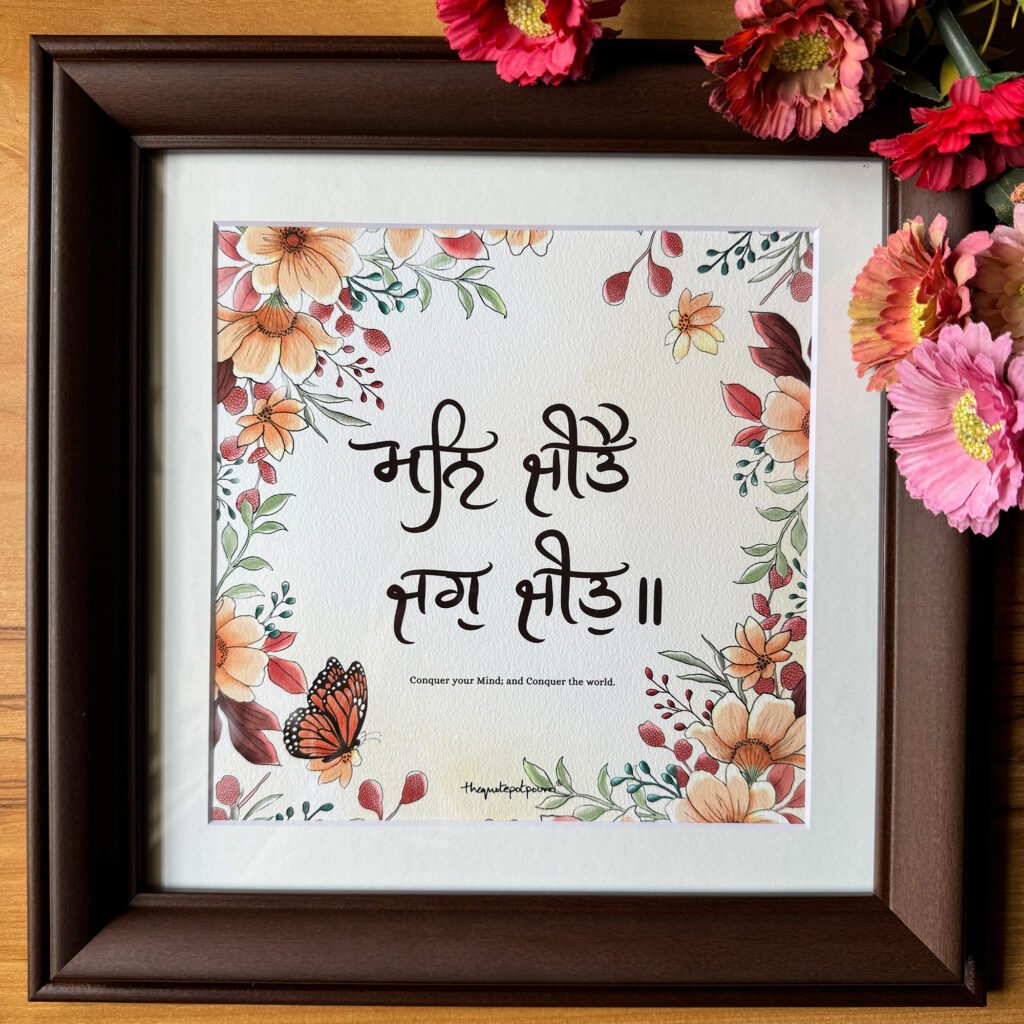 ਮਨਿ ਜੀਤੈ
ਜਗੁ ਜੀਤੁ॥
Conquer your Mind; and Conquer the world.
thequotepotpourri